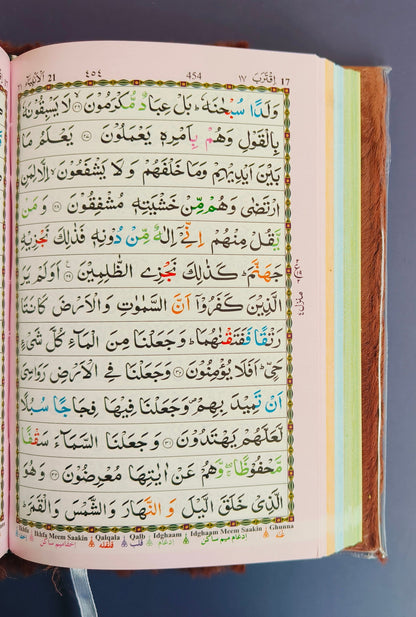 الانبیآء 21 ٤٥٤ 454 اقترب ١٧ 17
وَلَدًا سُبْحٰنَهٗ ؕ بَلْ عِبَادٌ مُّكْرَمُوْنَ ۙ﴿۲۶﴾ لَا يَسْبِقُوْنَهٗ
بِالْقَوْلِ وَهُمْ بِاَمْرِهٖ يَعْمَلُوْنَ ﴿۲۷﴾ يَعْلَمُ مَا
بَيْنَ اَيْدِيْهِمْ وَمَا خَلْفَهُمْ وَلَا يَشْفَعُوْنَ ۙ اِلَّا لِمَنِ
ارْتَضٰى وَهُمْ مِّنْ خَشْيَتِهٖ مُشْفِقُوْنَ ﴿۲۸﴾ وَمَنْ
يَّقُلْ مِنْهُمْ اِنِّيْۤ اِلٰهٌ مِّنْ دُوْنِهٖ فَذٰلِكَ نَجْزِيْهِ
جَهَنَّمَ ؕ كَذٰلِكَ نَجْزِي الظّٰلِمِيْنَ ﴿۲۹﴾ اَوَلَمْ يَرَ
الَّذِيْنَ كَفَرُوْۤا اَنَّ السَّمٰوٰتِ وَالْاَرْضَ كَانَتَا
رَتْقًا فَفَتَقْنٰهُمَا ؕ وَجَعَلْنَا مِنَ الْمَآءِ كُلَّ شَيْءٍ
حَيٍّ ؕ اَفَلَا يُؤْمِنُوْنَ ﴿۳۰﴾ وَجَعَلْنَا فِي الْاَرْضِ رَوَاسِيَ
اَنْ تَمِيْدَ بِهِمْ ۪ وَجَعَلْنَا فِيْهَا فِجَاجًا سُبُلًا
لَّعَلَّهُمْ يَهْتَدُوْنَ ﴿۳۱﴾ وَجَعَلْنَا السَّمَآءَ سَقْفًا
مَّحْفُوْظًا ۖۚ وَّهُمْ عَنْ اٰيٰتِهَا مُعْرِضُوْنَ ﴿۳۲﴾ وَهُوَ
الَّذِيْ خَلَقَ الَّيْلَ وَالنَّهَارَ وَالشَّمْسَ وَالْقَمَرَ ؕ
منزل ٤
Ikhfa Meem Saakin Qalqala Qalb Idghaam Idghaam Meem Saakin Ghunna
اخفا میم ساکن قلقلہ قلب ادغام ادغام میم ساکن غنہ